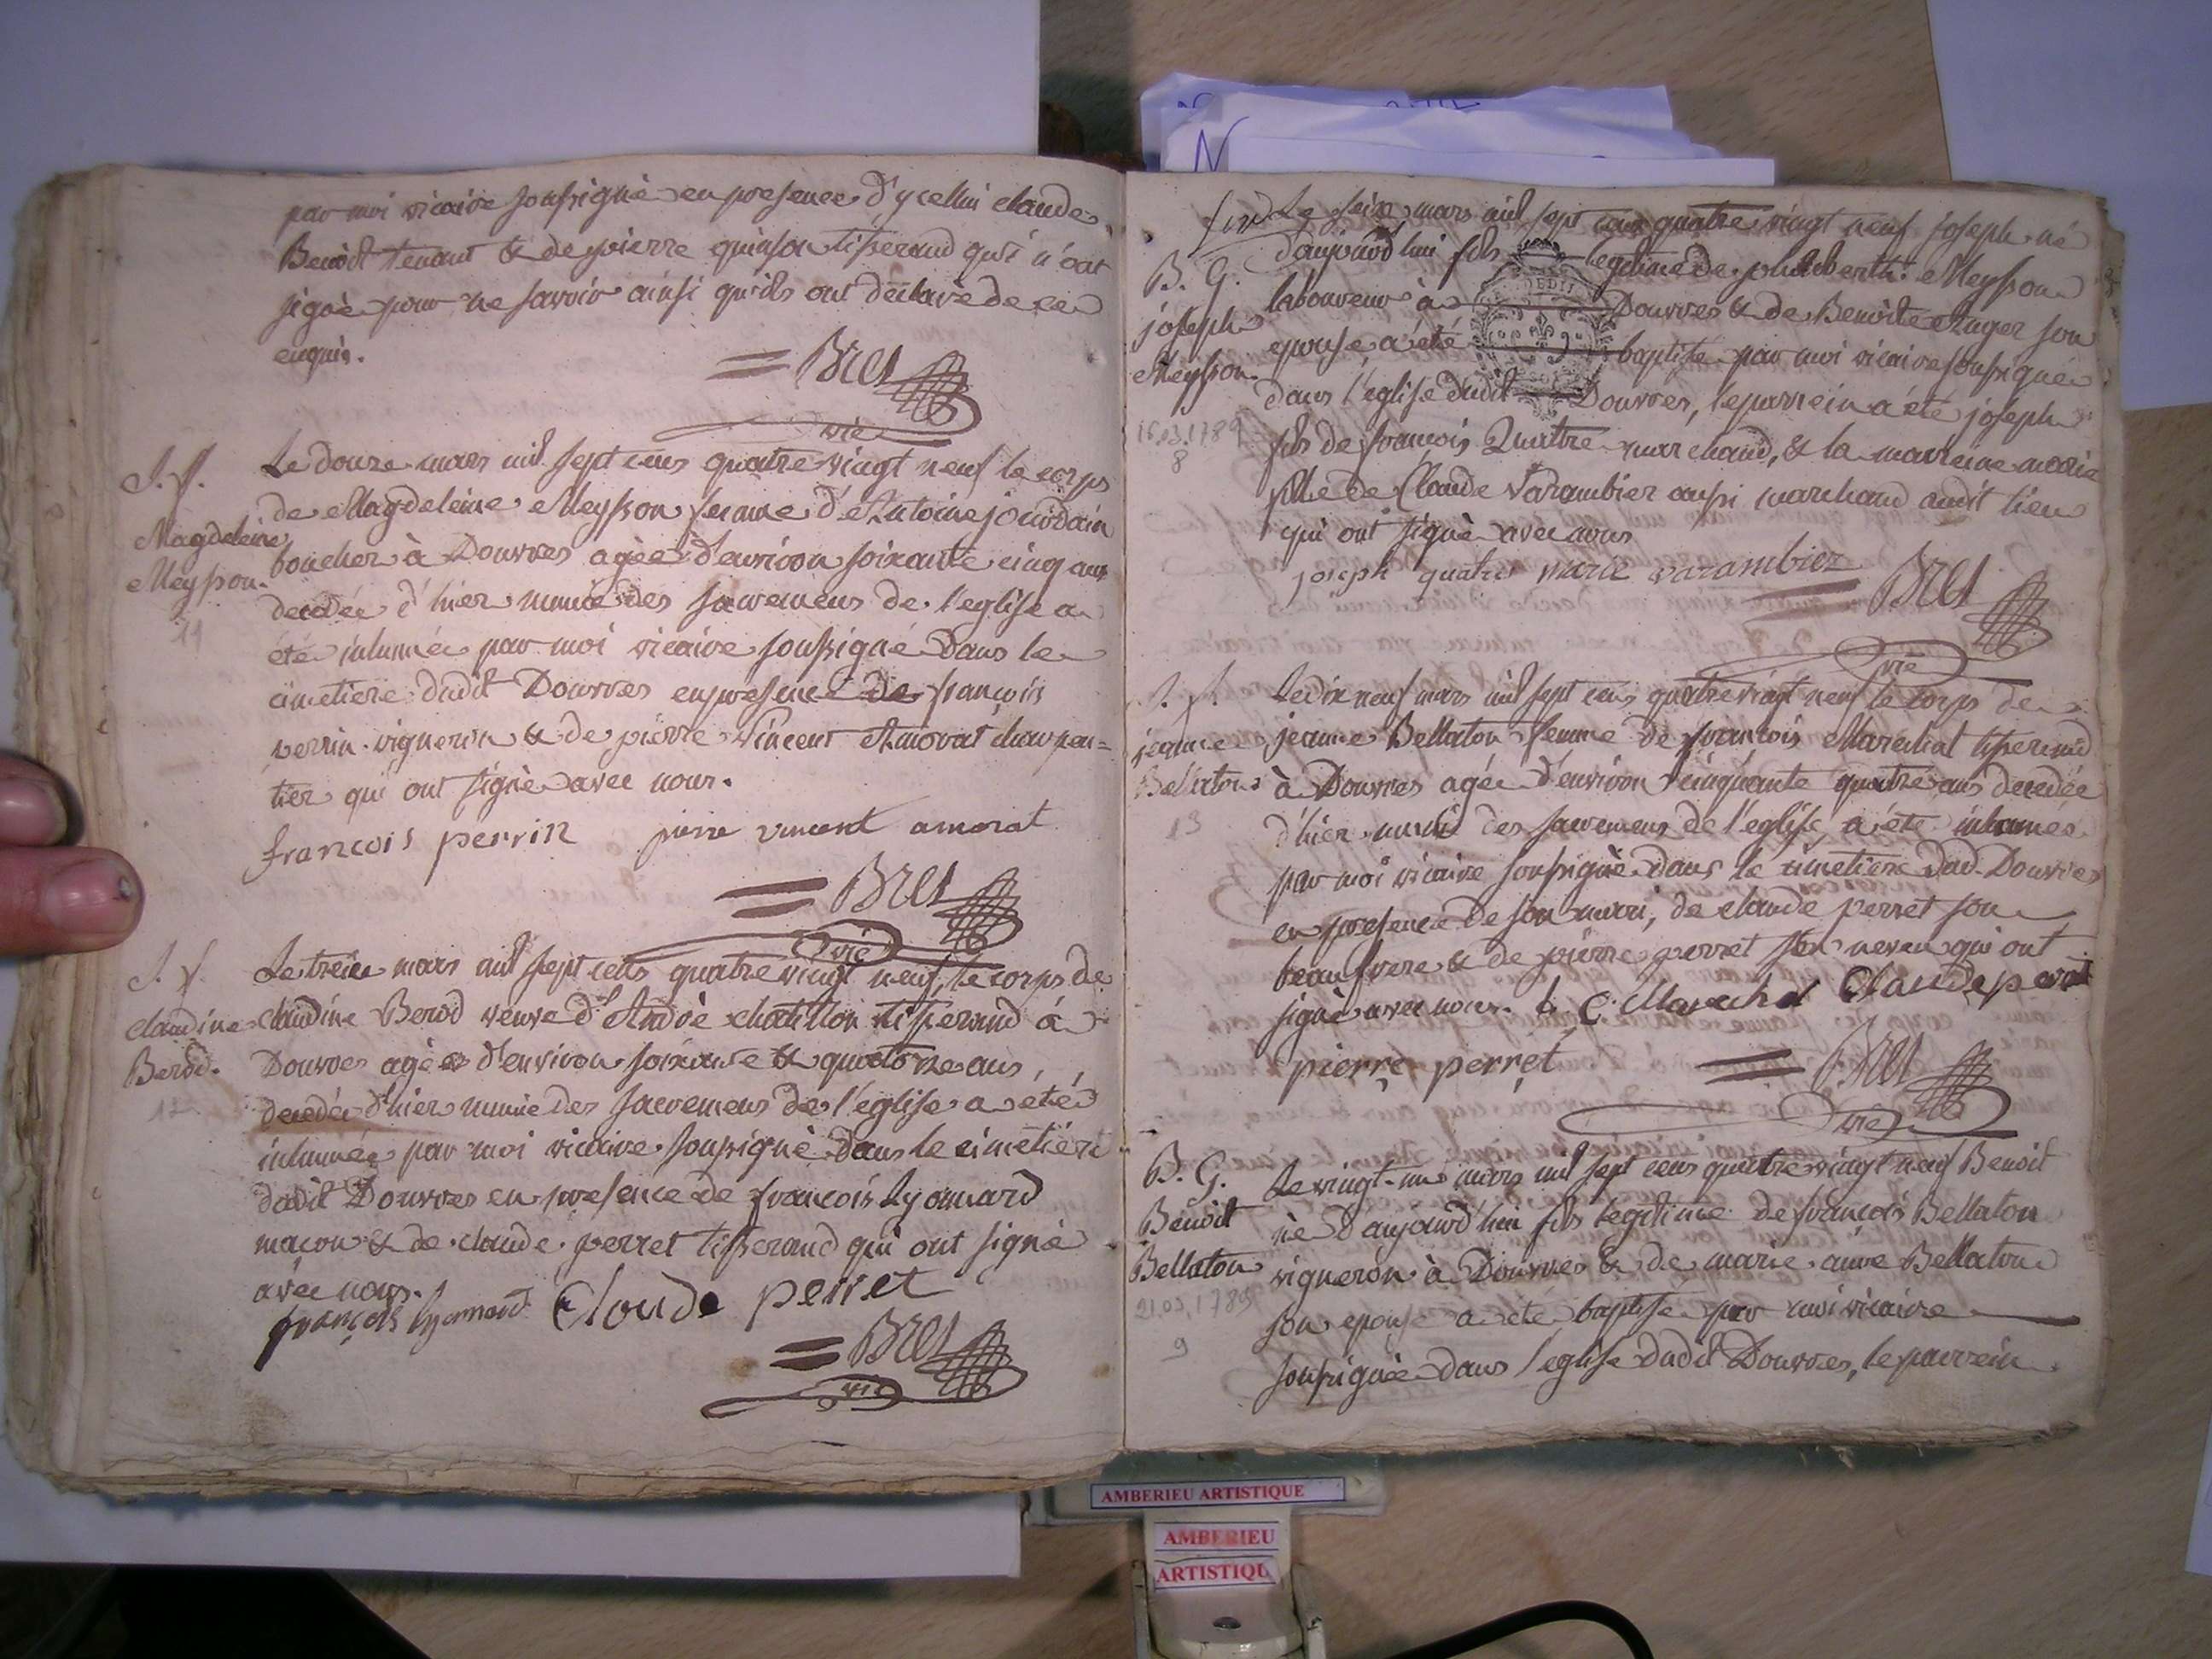 par moi vicaire soussigné en presence d'ycelui claude
Benoît tenant & de pierre quinson tisserand qui n'ont
signé pour ne savoir ainsi qu'ils ont déclaré de ce
enquis.
= Bret
vic
S. f.
Magdeleine
Meysson.
11
Le douze mars mil sept cens quatre vingt neuf le corps
de Magdeleine Meysson femme d'Antoine jourdain
boucher à Douvres agée d'environ soixante cinq ans
decedée d'hier munie des sacremens de l'eglise a
été inhumée par moi vicaire soussigné dans le
cimetiere dudit Douvres en presence de françois
perrin vigneron & de pierre Vincent Amorat charpen=
tier qui ont signé avec nous.
francois perrin pierre vincent amorat
= Bret
vic
S. f.
claudine
Berod.
12
Le treize mars mil sept cens quatre vingt neuf, le corps de
claudine Berod veuve d'André chatillon tisserand à
Douvres agée d'environ soixante & quatorze ans,
decedée d'hier munie des sacremens de l'église a été
inhumée par moi vicaire soussigné dans le cimetiére
dudit Douvres en presence de françois Lyonnard
macon & de claude perret tisserand qui ont signé
avec nous.
françois lyonnard Claude perret
= Bret
vic
B. G.
joseph
Meysson.
16.03.1789
8
Le seize mars mil sept cens quatre vingt neuf joseph né
d'aujourd'hui fils legitime de philiberth Meysson
laboureur à Douvres & de Benoîte Auger son
epouse, a été baptisé par moi vicaire soussigné
dans l'église dudit Douvres, le parrein a été joseph
fils de françois Quatre marchand, & la marreine marie
fille de Claude Varambier aussi marchand audit lieu
qui ont signé avec nous
joseph quatre marie varambier
= Bret
vic
S. f.
jeanne
Bellaton
13
Le dix neuf mars mil sept cens quatre vingt neuf le corps de
jeanne Bellaton femme de françois Marechal tisserand
à Douvres agée d'environ cinquante quatre ans decedée
d'hier munie des sacremens de l'eglise, a été inhumée
par moi vicaire soussigné dans le cimetiere dud. Douvres
en presence de son mari, de claude perret son
beau frere & de pierre perret son neveu qui ont
signé avec nous. f. Marechal Claude perret
pierre perret
= Bret
vic
B. G.
Benoît
Bellaton
21.03.1789
9
Le vingt-un mars mil sept cens quatre vingt neuf Benoit
né d'aujourd'hui fils legitime de françois Bellaton
vigneron à Douvres & de marie anne Bellaton
son epouse a été baptisé par moi vicaire
soussigné dans l'eglise dudit Douvres, le parrein
AMBERIEU ARTISTIQUE
AMBERIEU
ARTISTIQU